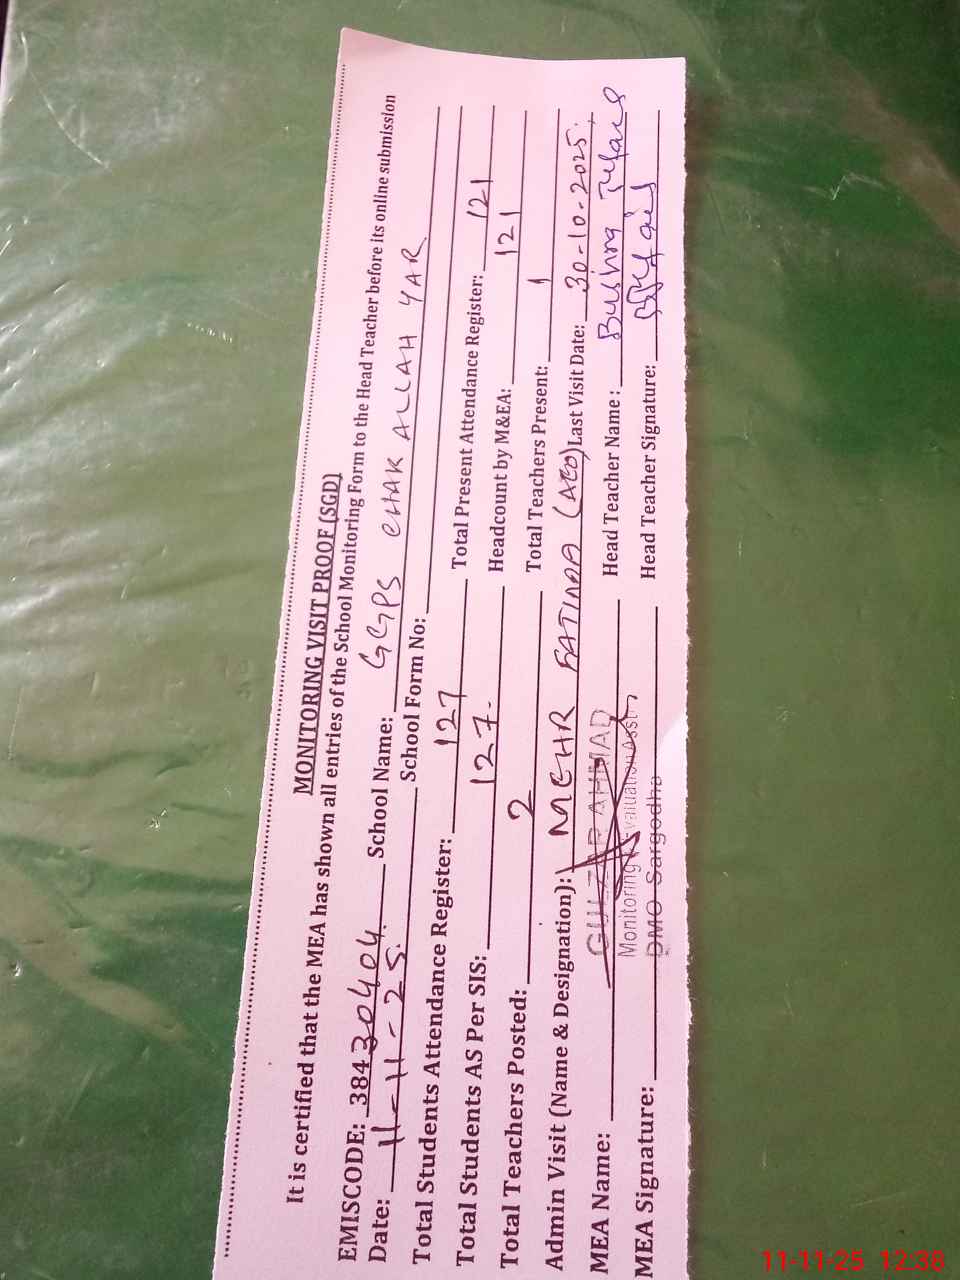 MONITORING VISIT PROOF (SGD)
It is certified that the MEA has shown all entries of the School Monitoring Form to the Head Teacher before its online submission
EMISCODE: 38430404 School Name: GGPS CHAK ALLAH YAR
Date: 11-11-25. School Form No:
Total Students Attendance Register: 127 Total Present Attendance Register: 121
Total Students AS Per SIS: 127. Headcount by M&EA: 121
Total Teachers Posted: 2 Total Teachers Present: 1
Admin Visit (Name & Designation): MEHR FATIMA (AEO) Last Visit Date: 30-10-2025.
MEA Name: GULZAR AHMAD Head Teacher Name: Bushra
Monitoring Evaluation Asstt
MEA Signature: DMO Sargodha Head Teacher Signature:
11-11-25 12:38